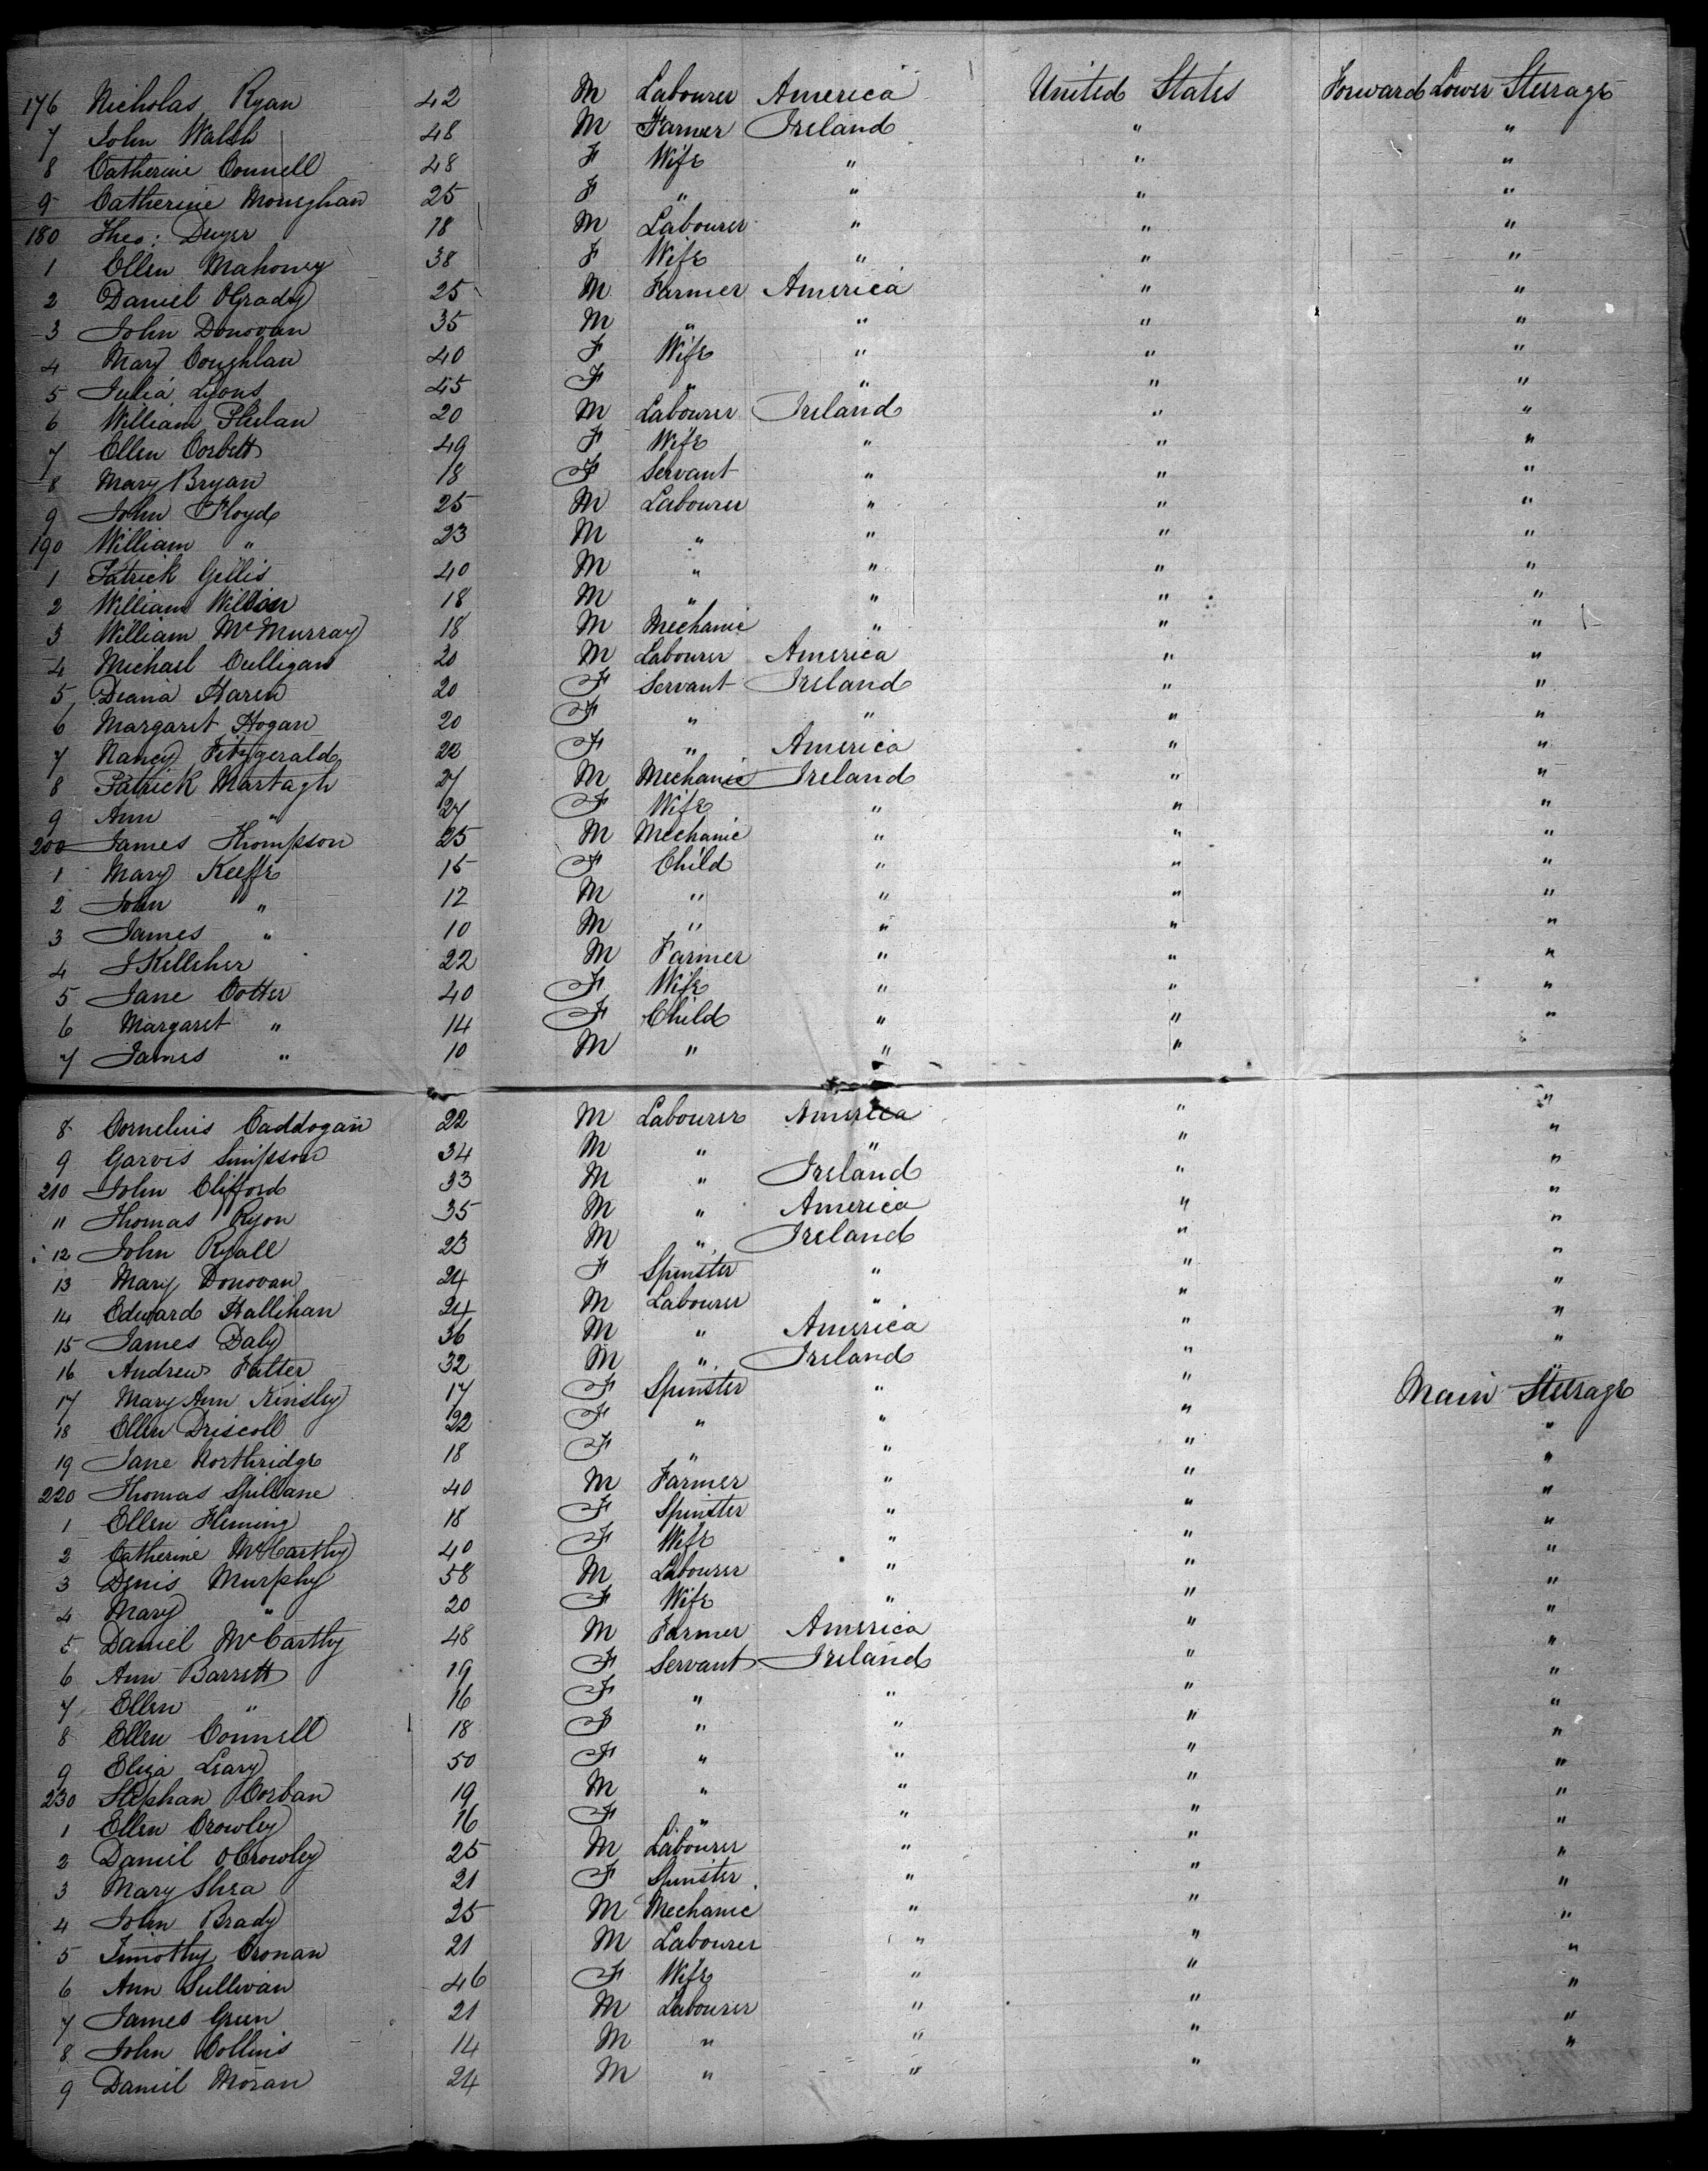 176 Nicholas Ryan 42 M Labourer America United States Forward Lower Steerage
7 John Walsh 48 M Farmer Ireland " "
8 Catherine Connell 48 F Wife " " "
9 Catherine Moneghan 25 F " " " "
180 Theo: Dwyer 18 M Labourer " " "
1 Ellen Mahoney 38 F Wife " " "
2 Daniel OGrady 25 M Farmer America " "
3 John Donovan 35 M " " " "
4 Mary Coughlan 40 F Wife " " "
5 Julia Lyons 45 F " " " "
6 William Phelan 20 M Labourer Ireland " "
7 Ellen Corbett 49 F Wife " " "
8 Mary Bryan 18 F Servant " " "
9 John Floyd 25 M Labourer " " "
190 William " 23 M " " " "
1 Patrick Gellis 40 M " " " "
2 William 18 M " " " "
3 William McMurray 18 M Mechanic " " "
4 Michael Culligan 20 M Labourer America " "
5 Deana Haren 20 F Servant Ireland " "
6 Margaret Hogan 20 F " " " "
7 Nancy Fitzgerald 22 F " America " "
8 Patrick Martagh 27 M Mechanic Ireland " "
9 Ann " 27 F Wife " " "
200 James Thompson 25 M Mechanic " " "
1 Mary Keeffe 15 F Child " " "
2 John " 12 M " " " "
3 James " 10 M " " " "
4 J Kelleher 22 M Farmer " " "
5 Jane Cotter 40 F Wife " " "
6 Margaret " 14 F Child " " "
7 James " 10 M " " "
8 Cornelius Caddogan 22 M Labourer America " "
9 Garvis Simpson 34 M " " " "
210 John Clifford 33 M " Ireland " "
11 Thomas Ryon 35 M " America " "
12 John Ryall 23 M " Ireland " "
13 Mary Donovan 24 F Spinster " " "
14 Edward Hallihan 24 M Labourer " " "
15 James Daly 36 M " America " "
16 Andrew 32 M " Ireland " "
17 Mary Ann Kinsley 17 F Spinster " " Main Steerage
18 Ellen Driscoll 22 F " " " "
19 Jane Northridge 18 F " " " "
220 Thomas Spillane 40 M Farmer " " "
1 Ellen Fleming 18 F Spinster " " "
2 Catherine McCarthy 40 F Wife " " "
3 Denis Murphy 58 M Labourer " " "
4 Mary " 20 F Wife " " "
5 Daniel McCarthy 48 M Farmer America " "
6 Ann Barrett 19 F Servant Ireland " "
7 Ellen " 16 F " " " "
8 Ellen Connell 18 F " " " "
9 Eliza Leary 50 F " " " "
230 Stephan Corban 19 M " " " "
1 Ellen Crowley 16 F " " " "
2 Daniel OCrowley 25 M Labourer " " "
3 Mary Shea 21 F Spinster " " "
4 John Brady 25 M Mechanic " " "
5 Timothy Cronan 21 M Labourer " " "
6 Ann Sullivan 46 F Wife " " "
7 James Green 21 M Labourer " " "
8 John Collins 14 M " " " "
9 Daniel Moran 24 M " " "